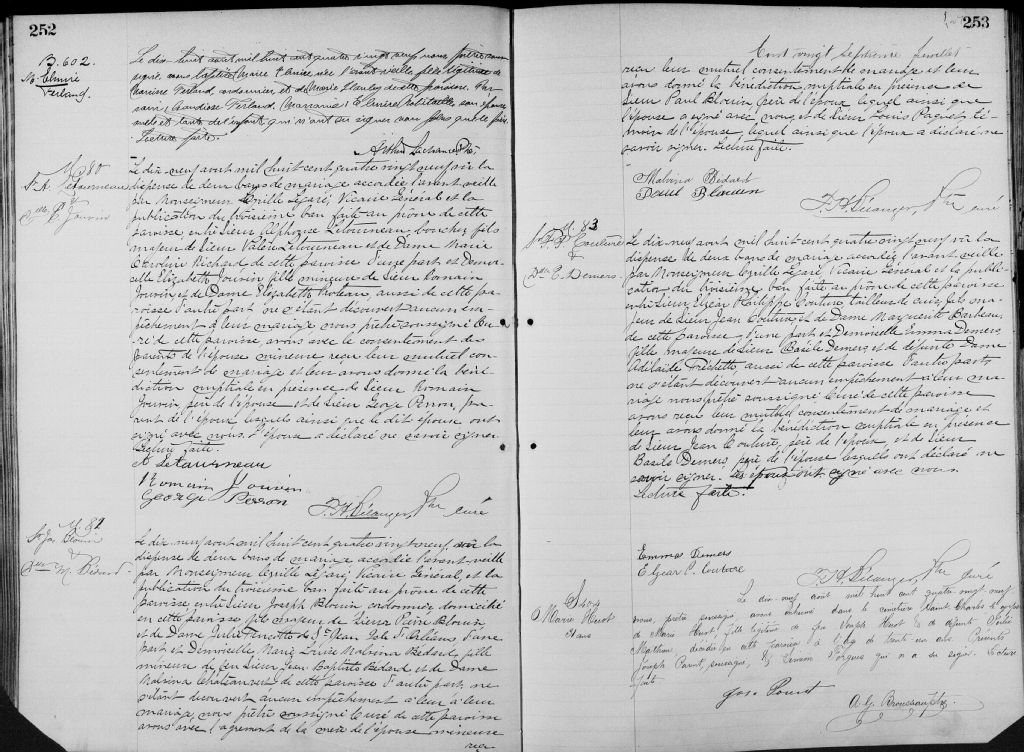 252
B. 602.
M. Elmire
Ferland.
Le dix-huit août mil huit cent quatre vingt neuf nous prêtre sous-
signé, avons baptisé Marie Elmire née l'avant veille, fille légitime de
Ferland, cordonnier et de Marie de cette paroisse. Par-
rain Ferland, Marraine Elmire son épouse
oncle et tante de l'enfant, qui n'ont su signer non plus que le père.
Lecture faite.
Arthur Lachance Ptre
M. 80
Sr A. Letourneau
&
Dlle E. Jouvin
Le dix neuf août mil huit cent quatre vingt neuf vu la
dispense de deux bans de mariage accordée l'avant veille
par Monseigneur Cyrille Légaré, Vicaire Général et la
publication du troisième ban faite au prône de cette
paroisse entre Sieur Alphonse Letourneau, boucher, fils
majeur de Sieur Valère Letourneau et de Dame Marie
Caroline Richard de cette paroisse d'une part et Demoi-
selle Elizabeth Jouvin fille mineure de Sieur Romain
Jouvin et de Dame Elizabeth Proteau, aussi de cette pa-
roisse d'autre part ne s'étant découvert aucun em-
pêchement à leur mariage nous prêtre soussigné Cu-
ré de cette paroisse, avons avec le consentement des
parents de l'épouse mineure reçu leur mutuel con-
sentement de mariage et leur avons donné la béné-
diction nuptiale en présence de Sieur Romain
Jouvin, père de l'épouse et de Sieur George Perron, pa-
rent de l'époux lesquels ainsi que le dit époux ont
signé avec nous. L'épouse a déclaré ne savoir signer.
Lecture faite.
A Letourneau
Romain Jouvin
George Perron
F. H. Bélanger, Ptre curé
M. 82
Sr Jos. Blouin
&
Dlle M. Bédard
Le dix-neuf août mil huit cent quatre vingt neuf vu la
dispense de deux bans de mariage accordée l'avant-veille
par Monseigneur Cyrille Légaré, Vicaire Général, et la
publication du troisième ban faite au prône de cette
paroisse entre Sieur Joseph Blouin cordonnier domicilié
en cette paroisse, fils majeur de Sieur Pierre Blouin,
et de Dame Julie Turcotte de St Jean Isle d'Orléans d'une
part et Demoiselle Marie Louise Malvina Bédard fille
mineure de feu Sieur Jean Baptiste Bédard et de Dame
Malvina Châteauvert de cette paroisse d'autre part, ne
s'étant découvert aucun empêchement à leur à leur
mariage, nous prêtre soussigné Curé de cette paroisse
avons avec l'agrément de la mère de l'épouse mineure
reçu
253
Cent vingt septième feuillet
reçu leur mutuel consentement de mariage et leur
avons donné la bénédiction nuptiale en présence de
Sieur Paul Blouin, père de l'époux lequel ainsi que
l'épouse a signé avec nous, et de Sieur Louis Paquet, té-
moin de l'épouse, lequel ainsi que l'époux a déclaré ne
savoir signer. Lecture faite.
Malvina Bédard
Paul Blouin
F. H. Bélanger, Ptre curé
M. 83
Sr E. P. Couture
&
Dlle E. Demers.
Le dix-neuf août mil huit cent quatre vingt neuf vu la
dispense de deux bans de mariage accordée l'avant veille
par Monseigneur Cyrille Légaré Vicaire Général et la publi-
cation du troisième ban faite au prône de cette paroisse
entre Sieur Elzéar Philippe Couture, tailleur de cuir, fils ma-
jeur de Sieur Jean Couture, et de Dame Marguerite Barbeau,
de cette paroisse d'une part et Demoiselle Emma Demers,
fille majeure de Sieur Basile Demers et de défunte Dame
Adelaïde Fréchette, aussi de cette paroisse d'autre part,
ne s'étant découvert aucun empêchement à leur ma-
riage nous prêtre soussigné Curé de cette paroisse
avons reçu leur mutuel consentement de mariage et
leur avons donné la bénédiction nuptiale en présence
de Sieur Jean Couture, père de l'époux, et de Sieur
Basile Demers, père de l'épouse lesquels ont déclaré ne
savoir signer. Les époux ont signé avec nous
Lecture faite.
Emma Demers
Elzear P. Couture
F. H. Bélanger, Ptre curé
S. 404
Marie Huot
ans
Le dix-neuf août mil huit cent quatre vingt neuf
nous, prêtre soussigné avons inhumé dans le cimetière Saint Charles le corps
de Marie Huot, fille légitime de feu Joseph Huot & de défunte
Mathieu, décédée en cette paroisse à l'âge de trente un ans. Présents
Joseph Parent, soussigné, & qui n'a su signer. Lecture
faite.
Jos. Parent
A. G. Brousseau, Ptre